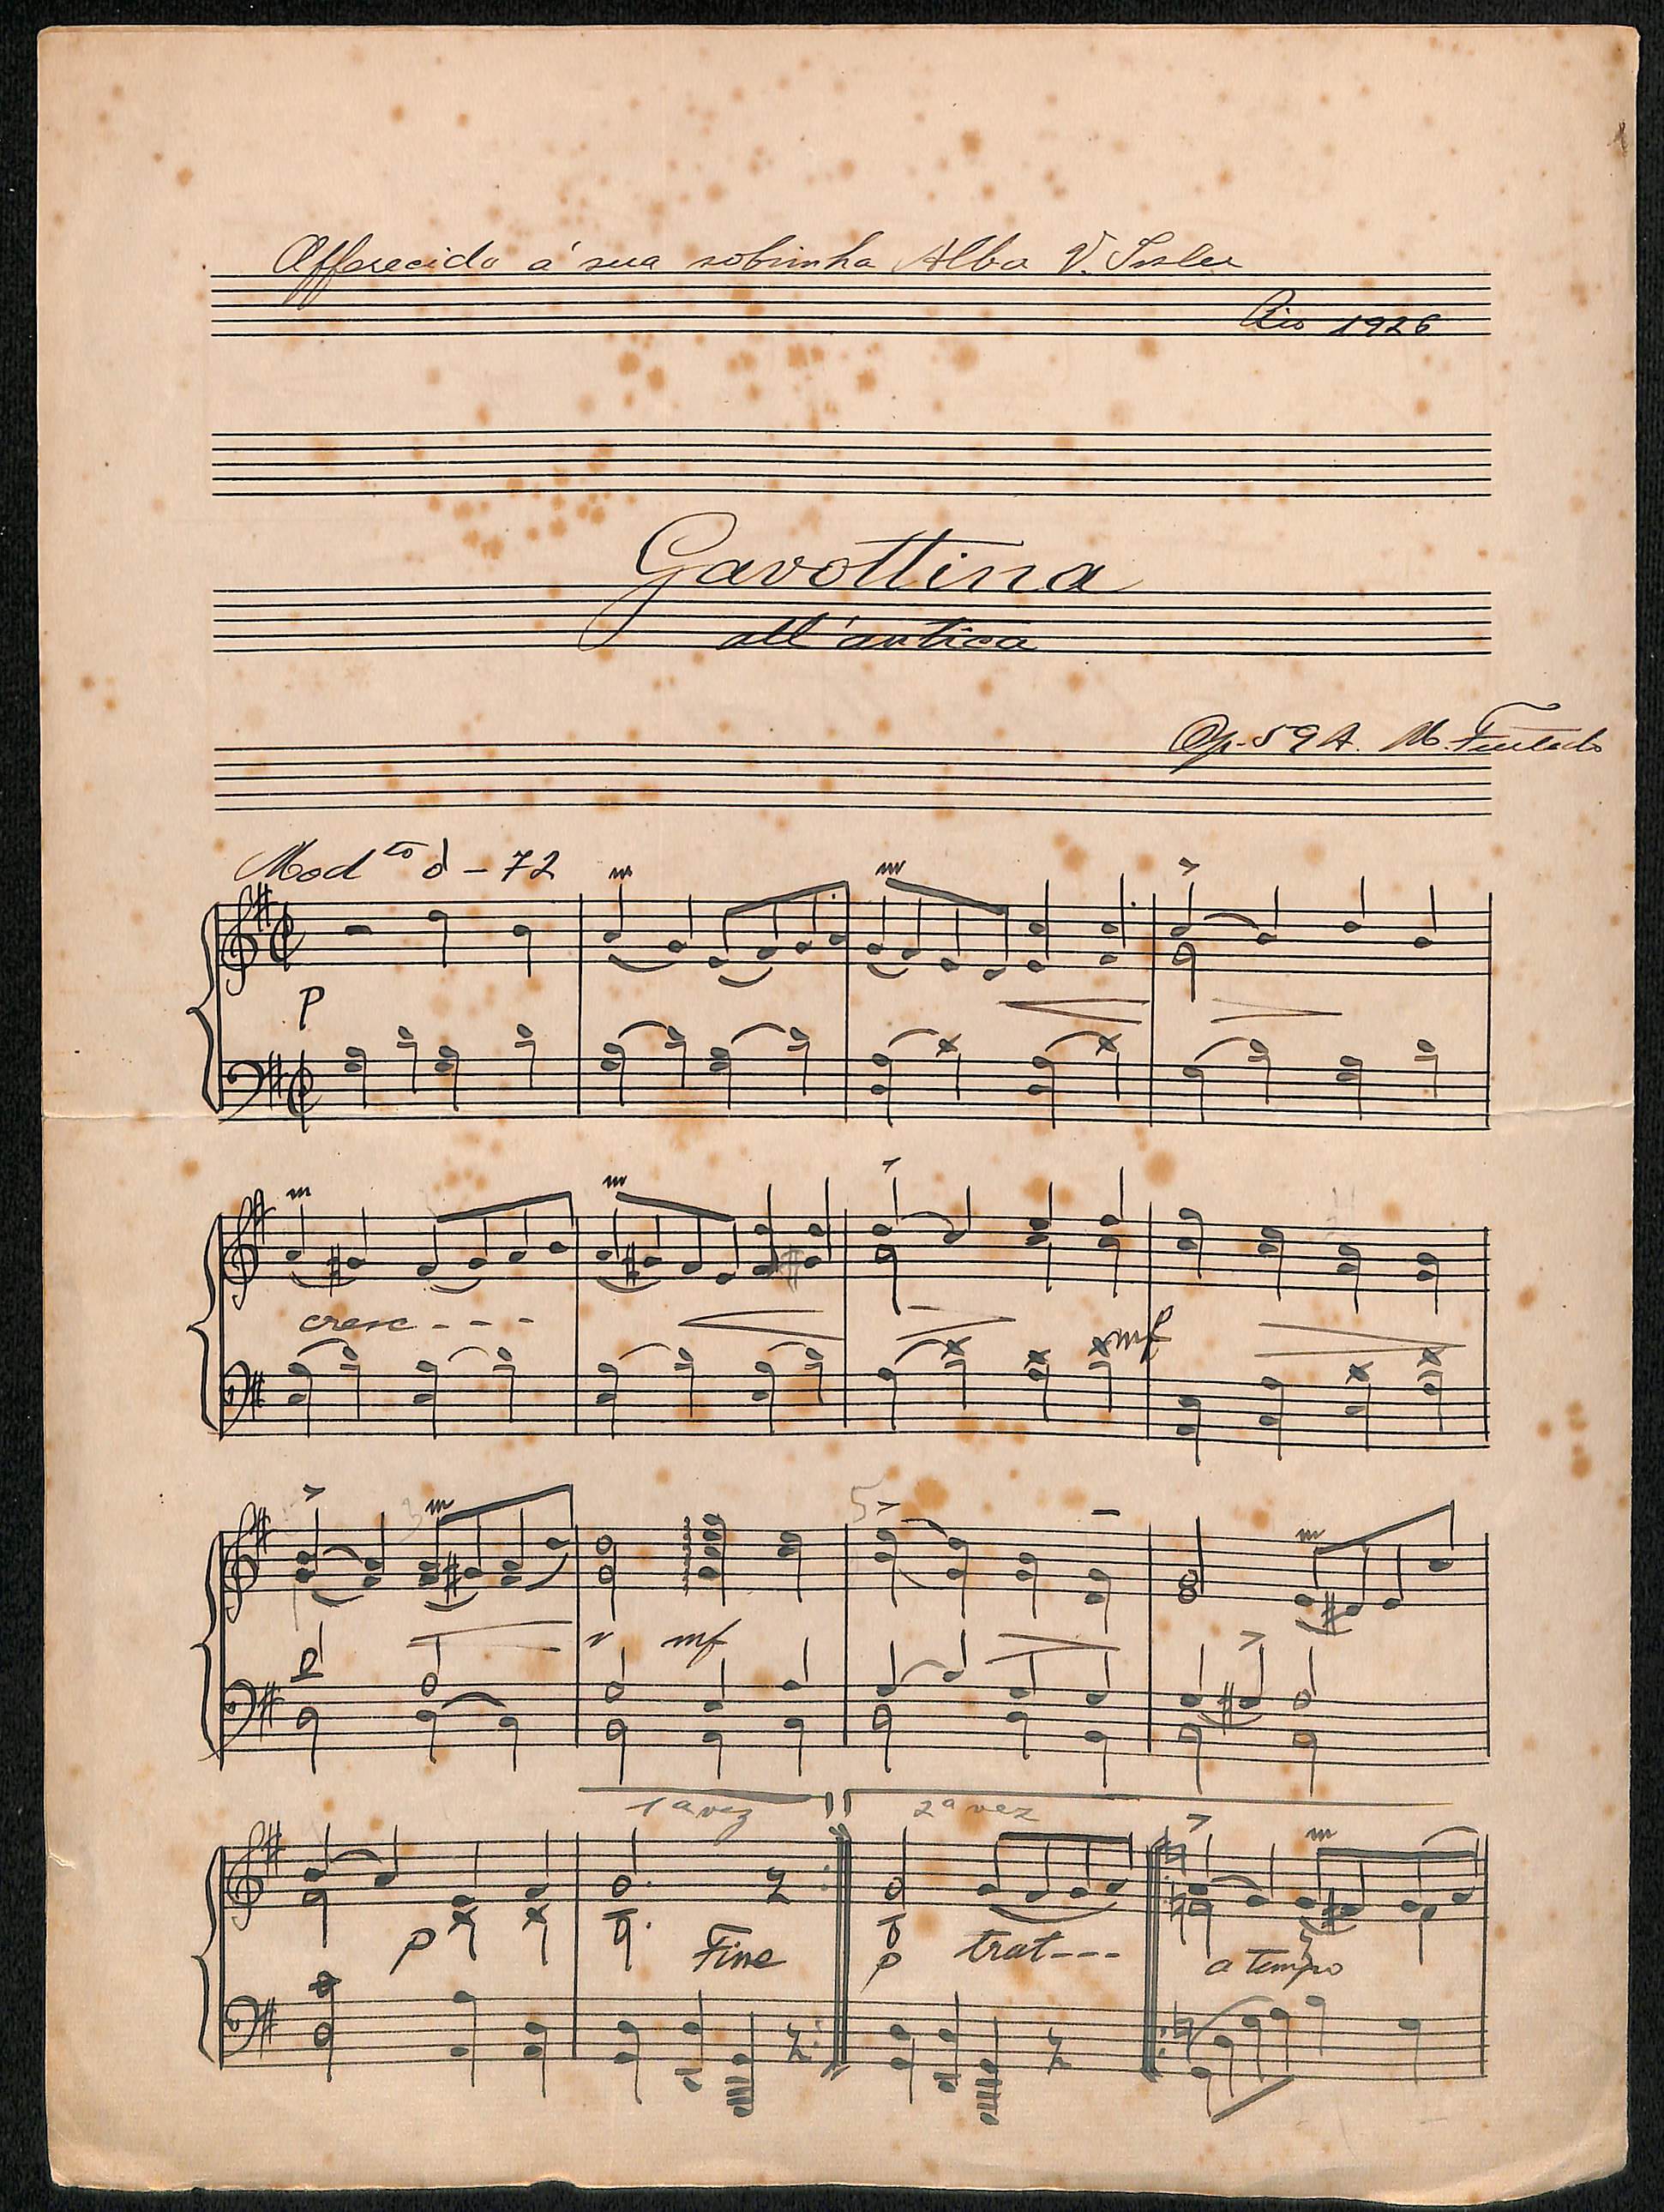 Offerecida á sua sobrinha Alba V.
Rio 1926
Gavottina
all'antica
Op. 59 A. M. Furtado
Mod to - 72
p
cresc - - -
mf
mf
1ª vez 2ª vez
p Fine p trat--- a tempo